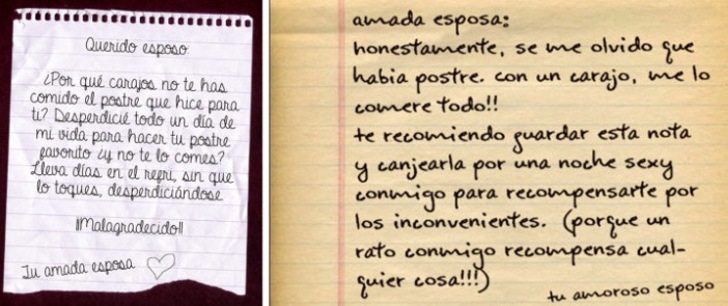 Querido esposo
¿Por qué carajos no te has
comido el postre que hice para
ti? Desperdicié todo un día de
mi vida para hacer tu postre
favorito ¿y no te lo comes?
Lleva días en el refri, sin que
lo toques, desperdiciándose
¡¡Malagradecido!!
Tu amada esposa
amada esposa:
honestamente, se me olvido que
habia postre. con un carajo, me lo
comere todo!!
te recomiendo guardar esta nota
y canjearla por una noche sexy
conmigo para recompensarte por
los inconvenientes. (porque un
rato conmigo recompensa cual-
quier cosa!!!)
tu amoroso esposo